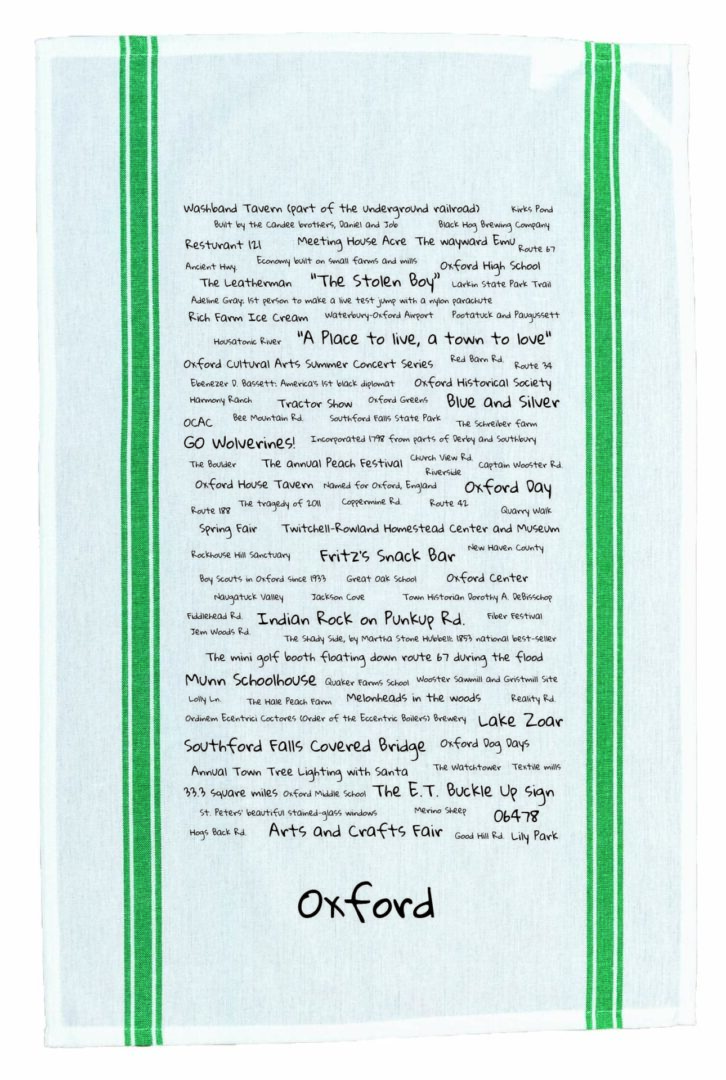 Washband Tavern (part of the underground railroad) Kirks Pond
Built by the Candee brothers, Daniel and Job Black Hog Brewing Company
Resturant 121 Meeting House Acre The wayward Emu Route 67
Ancient Hwy. Economy built on small farms and mills Oxford High School
The Leatherman "The Stolen Boy" Larkin State Park Trail
Adeline Gray: 1st person to make a live test jump with a nylon parachute
Rich Farm Ice Cream Waterbury-Oxford Airport Pootatuck and Paugussett
Housatonic River "A Place to live, a town to love"
Oxford Cultural Arts Summer Concert Series Red Barn Rd. Route 34
Ebenezer D. Bassett: America's 1st black diplomat Oxford Historical Society
Harmony Ranch Tractor Show Oxford Greens Blue and Silver
OCAC Bee Mountain Rd. Southford Falls State Park The Schreiber farm
GO Wolverines! Incorporated 1798 from parts of Derby and Southbury
The Boulder The annual Peach Festival Church View Rd. Captain Wooster Rd.
Riverside
Oxford House Tavern Named for Oxford, England Oxford Day
Route 188 The tragedy of 2011 Coppermine Rd. Route 42 Quarry Walk
Spring Fair Twitchell-Rowland Homestead Center and Museum
Rockhouse Hill Sanctuary Fritz's Snack Bar New Haven County
Boy Scouts in Oxford since 1933 Great Oak School Oxford Center
Naugatuck Valley Jackson Cove Town Historian Dorothy A. DeBisschop
Fiddlehead Rd. Indian Rock on Punkup Rd. Fiber Festival
Jem Woods Rd. The Shady Side, by Martha Stone Hubbell: 1853 national best-seller
The mini golf booth floating down route 67 during the flood
Munn Schoolhouse Quaker Farms School Wooster Sawmill and Gristmill Site
Lolly Ln. The Hale Peach Farm Melonheads in the woods Reality Rd.
Ordinem Ecentrici Coctores (Order of the Eccentric Boilers) Brewery Lake Zoar
Southford Falls Covered Bridge Oxford Dog Days
Annual Town Tree Lighting with Santa The Watchtower Textile mills
33.3 square miles Oxford Middle School The E.T. Buckle Up sign
St. Peters' beautiful stained-glass windows Merino Sheep 06478
Hogs Back Rd. Arts and Crafts Fair Good Hill Rd. Lily Park
Oxford